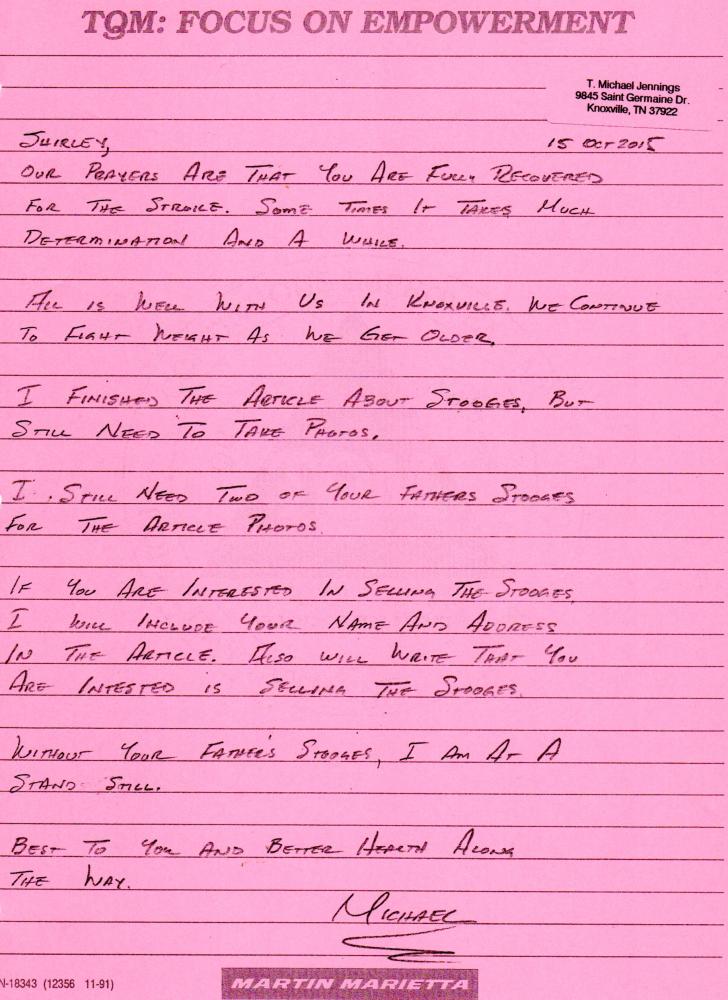 TQM: FOCUS ON EMPOWERMENT
T. Michael Jennings
9845 Saint Germaine Dr.
Knoxville, TN 37922
SHIRLEY, 15 OCT 2015
OUR PRAYERS ARE THAT YOU ARE FULLY RECOVERED
FOR THE STROKE. SOME TIMES IT TAKES MUCH
DETERMINATION AND A WHILE.
ALL IS WELL WITH US IN KNOXVILLE. WE CONTINUE
TO FIGHT WEIGHT AS WE GET OLDER.
I FINISHED THE ARTICLE ABOUT STOOGES, BUT
STILL NEED TO TAKE PHOTOS.
I STILL NEED TWO OF YOUR FATHERS STOOGES
FOR THE ARTICLE PHOTOS.
IF YOU ARE INTERESTED IN SELLING THE STOOGES,
I WILL INCLUDE YOUR NAME AND ADDRESS
IN THE ARTICLE. ALSO WILL WRITE THAT YOU
ARE INTESTED IS SELLING THE STOOGES.
WITHOUT YOUR FATHER'S STOOGES, I AM AT A
STAND STILL.
BEST TO YOU AND BETTER HEALTH ALONG
THE WAY.
MICHAEL
N-18343 (12356 11-91)
MARTIN MARIETTA